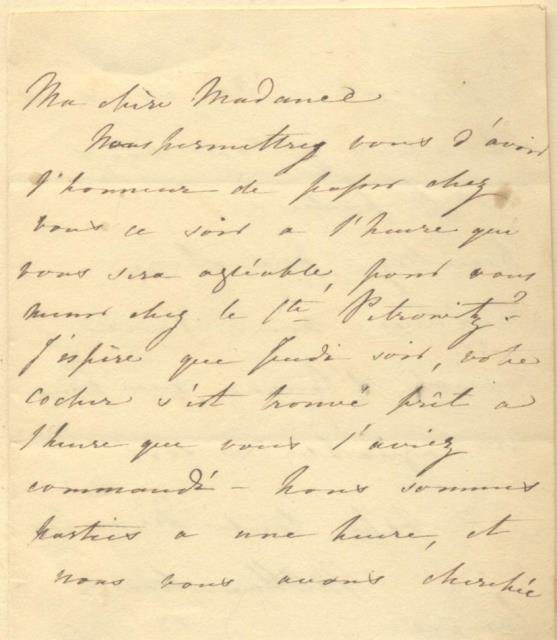 Ma chère Madame
Nous permettrez vous d'avoir
l'honneur de passer chez
vous ce soir a l'heure qui
vous sera agréable, pour vous
mener chez le Cte Pétrowitz?-
J'espère que Jeudi soir, votre
cocher s'est trouvé prêt a
l'heure que vous l'aviez
commandé - Nous sommes
parties a une heure, et
nous vous avons cherchée